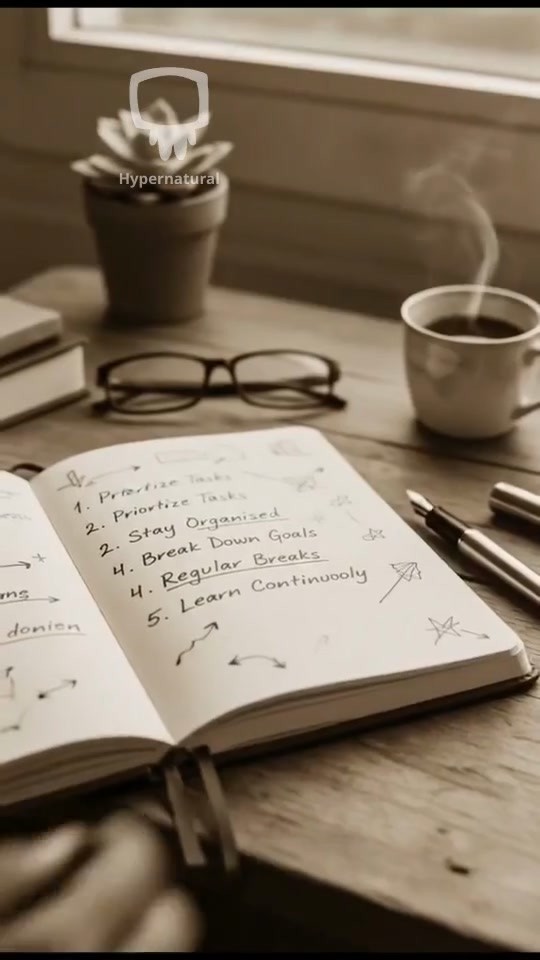 Hypernatural
1. Priertize Tasks
2. Priortize Tasks
2. Stay Organised
4. Break Down Goals
4. Regular Breaks
5. Learn Continuooly
donien